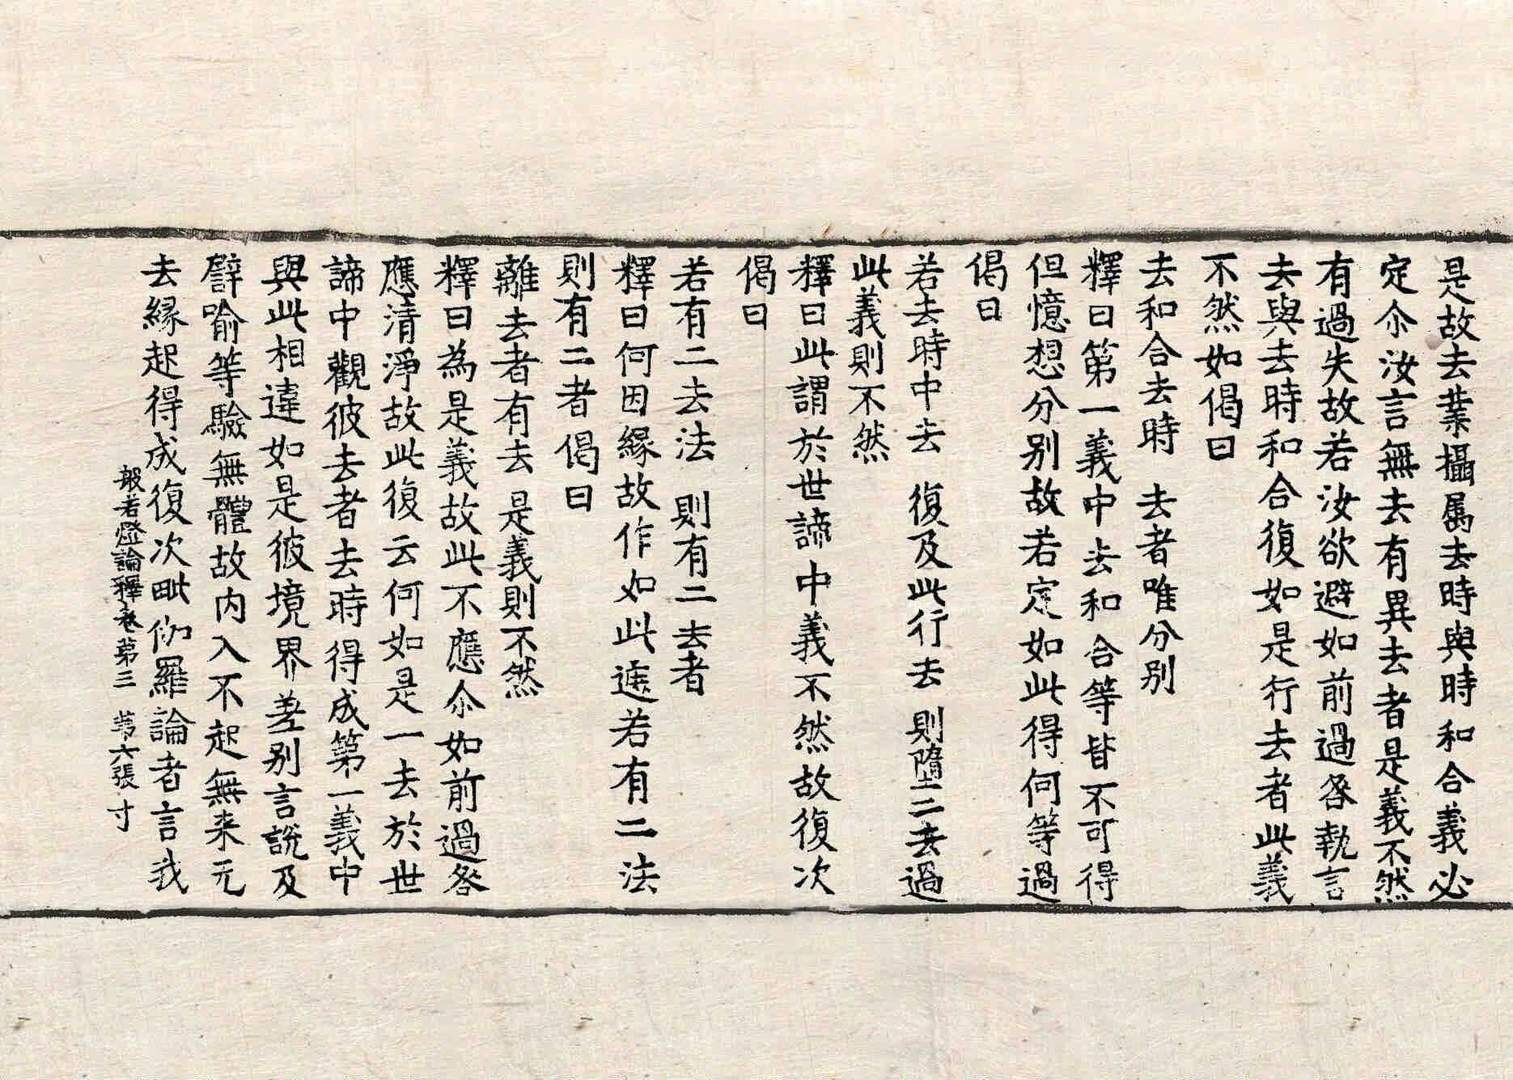 是故去業攝属去時與時和合義必
定尒汝言無去有異去者是義不然
有過失故若汝欲避如前過咎執言
去與去時和合復如是行去者此義
不然如偈曰
去和合去時 去者唯分别
釋曰第一義中去和合等皆不可得
但憶想分别故若定如此得何等過
偈曰
若去時中去 復及此行去 則墮二去過
此義則不然
釋曰此謂於世諦中義不然故復次
偈曰
若有二去法 則有二去者
釋曰何因緣故作如此遮若有二法
則有二者偈曰
離去者有去 是義則不然
釋曰為是義故此不應尒如前過咎
應清淨故此復云何如是一去於世
諦中觀彼去者去時得成第一義中
與此相違如是彼境界差别言說及
譬喻等驗無體故内入不起無来无
去縁起得成復次毗伽羅論者言我
般若燈論釋卷第三 苐六張 寸